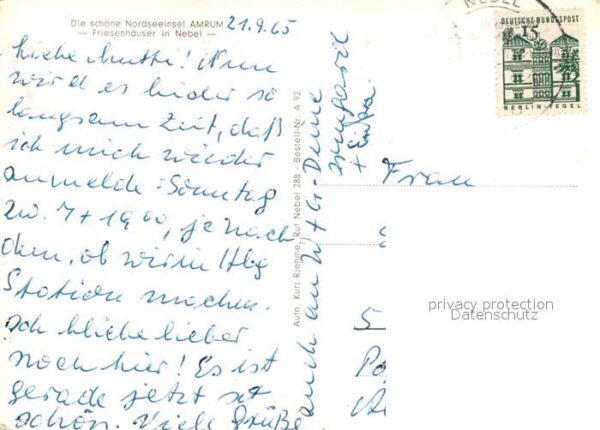 Die schöne Nordseeinsel AMRUM
— Friesenhäuser in Nebel —
21.9.65
Liebe Mutti! Nun
wird es leider so
langsam Zeit, daß
ich mich wieder
anmelde: Sonntag
zw. 7 + 19 00, je nach
dem, ob wir in Hbg
Station machen.
Ich bliebe lieber
noch hier! Es ist
gerade jetzt so
schön. Viele Grüße
auch an W + G. Deine
Irmgard
+ Einka
Aufn. Kurt Riehme, Ruf Nebel 288 - Bestell-Nr. A 92
NEBEL
DEUTSCHE BUNDESPOST
15
BERLIN-TEGEL
Frau
5
privacy protection
Datenschutz